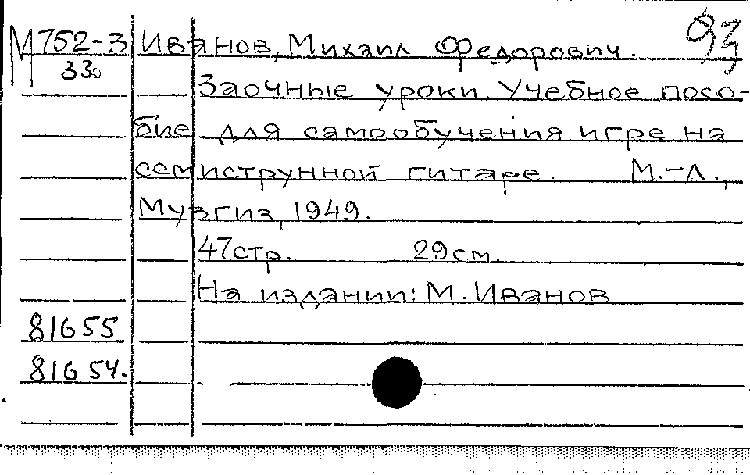 М 752-3 Иванов, Михаил Федорович. 93
330
Заочные уроки. Учебное посо-
бие для самообучения игре на
семиструнной гитаре. М.-Л.,
Музгиз, 1949.
47стр. 29см.
На издании: М. Иванов
81655
81654.